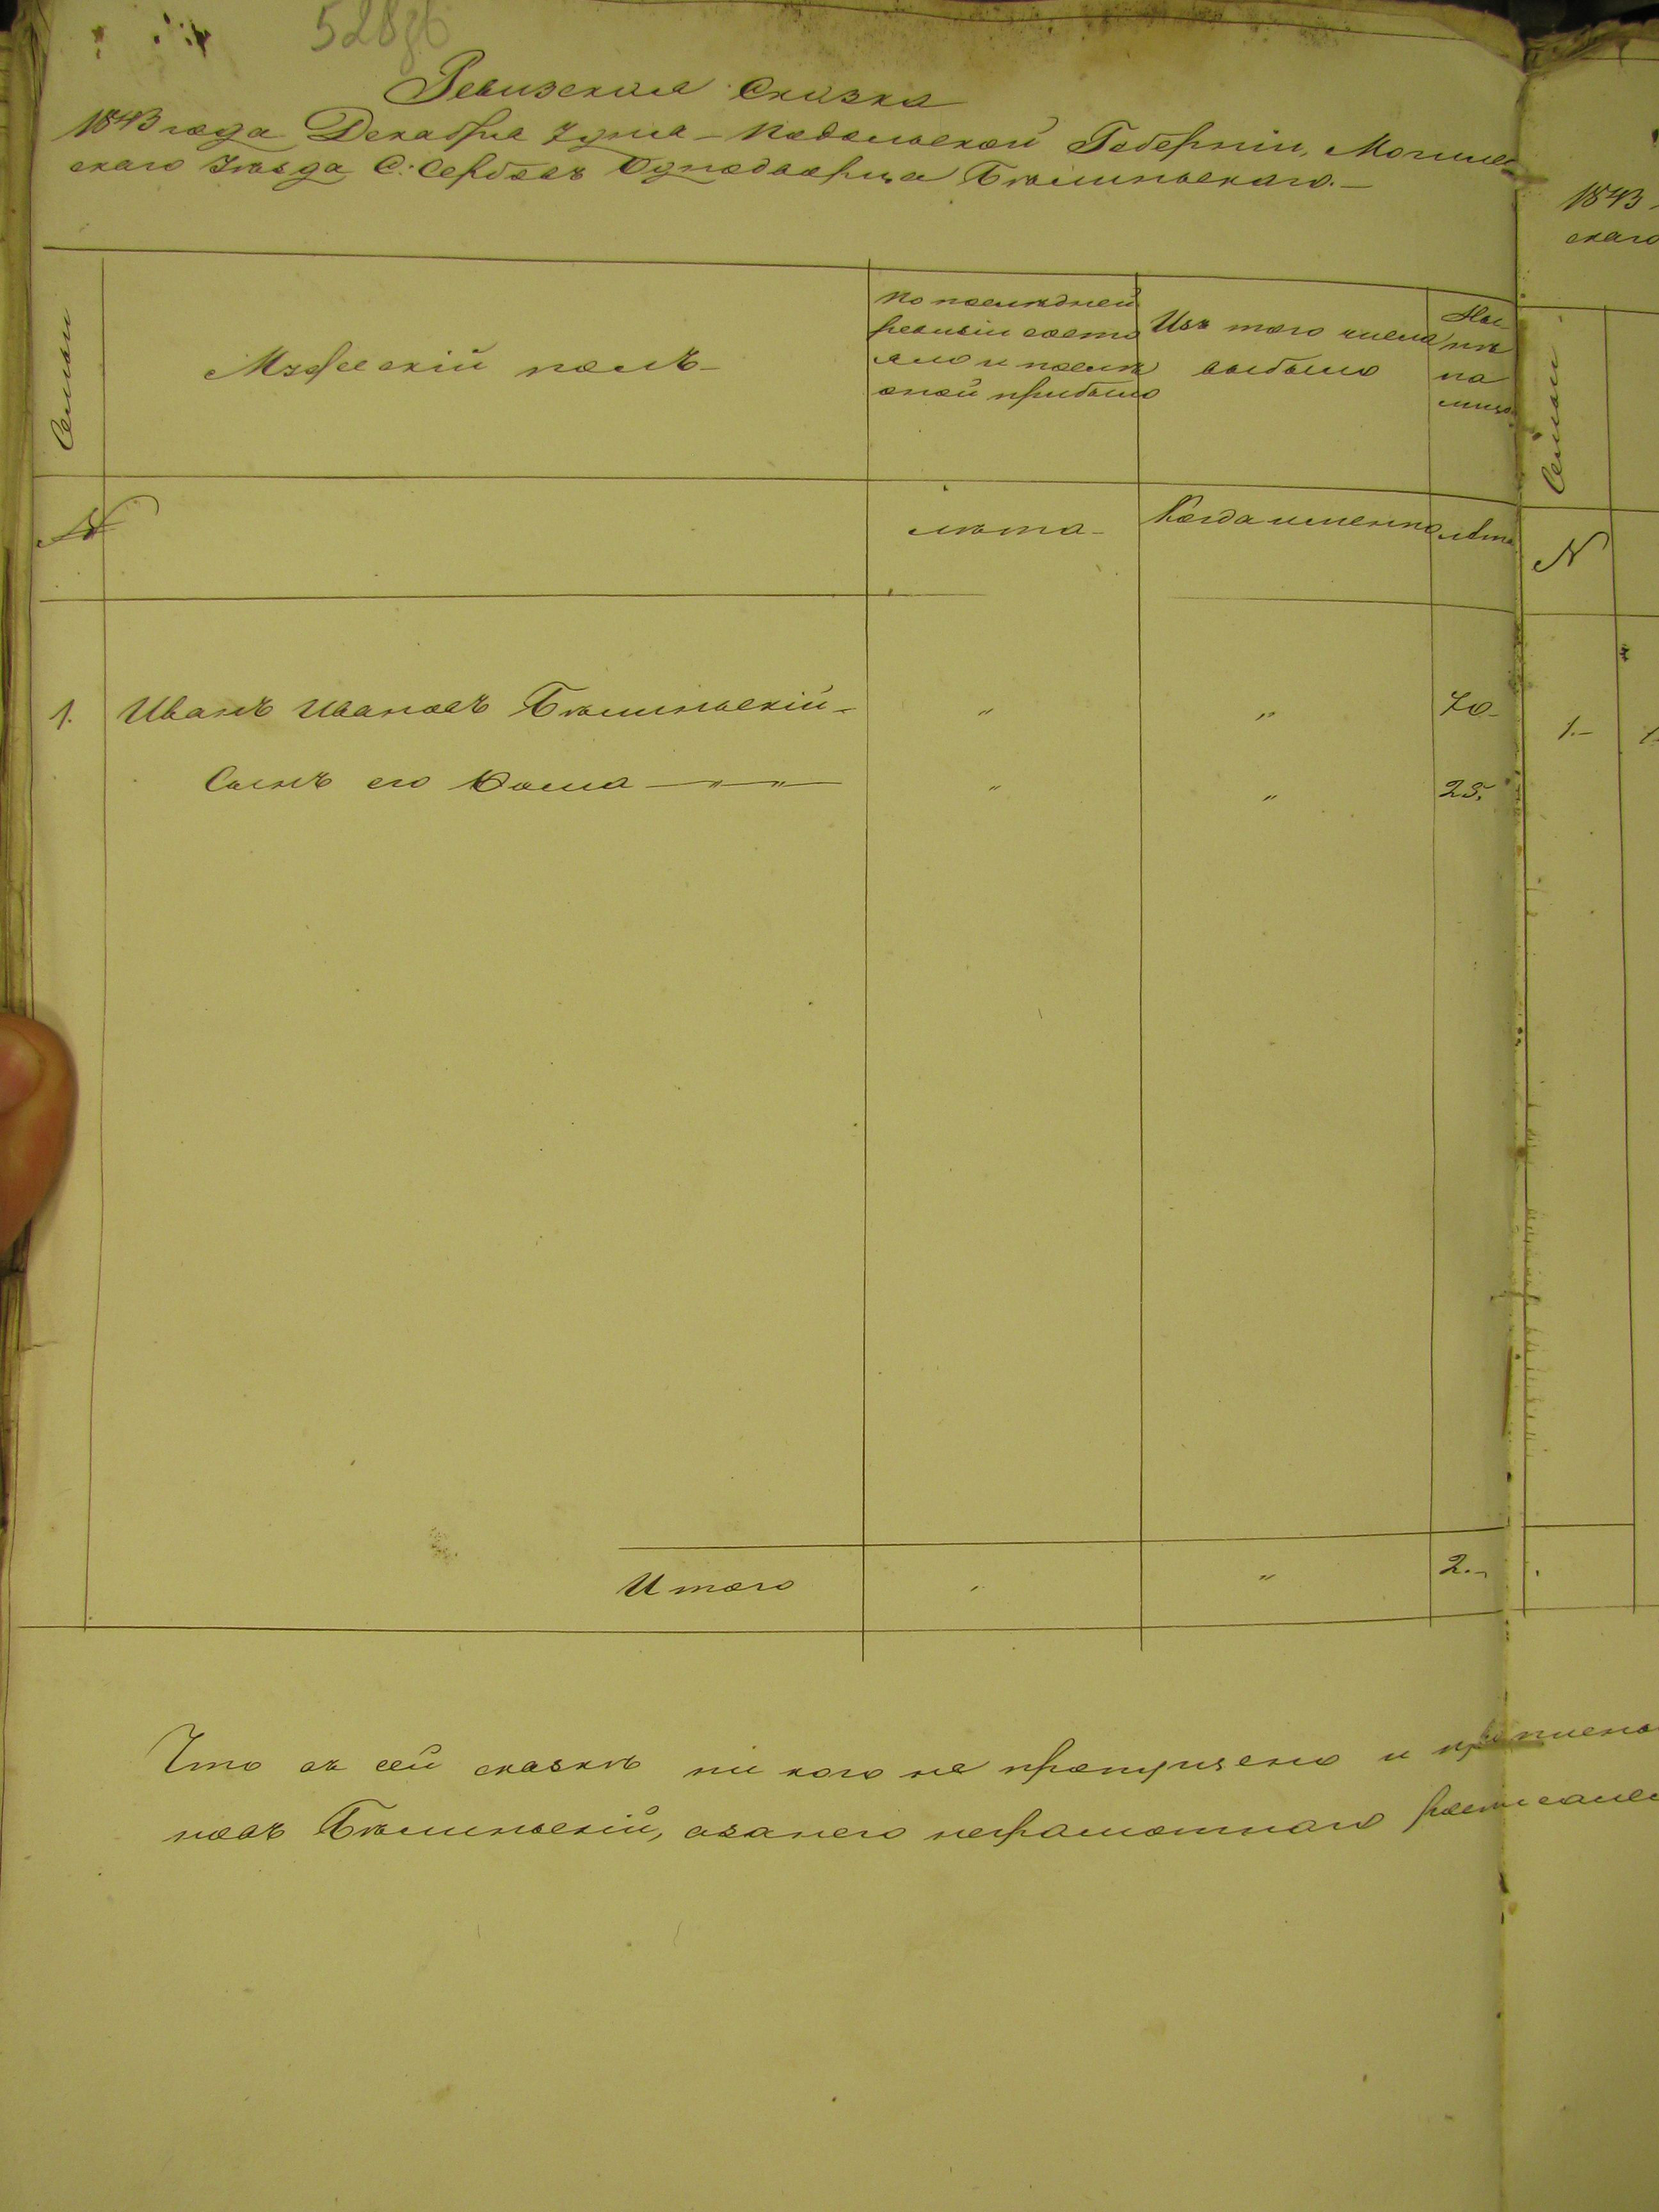 528
Ревизская Сказка
1843 года Декабря 7 дня – Подольской Губернiи, Могилев
скаго Уѣзда С: Сербовъ Однодворца Бѣлинскаго. –
1843
скаго
Семьи
Мужескiй полъ –
по послѣдней
ревизiи состо
яло и послѣ
оной прибыло
Изъ того числа
выбыло
Ны-
нѣ
на
лицо
Семьи
N
лѣта –
Когда именно
лѣта
N
1. Иванъ Ивановъ Бѣлинскiй – " " 70 –
Сынъ его Фома — " — " — " " 25.
1. –
Итого " " 2. –
Что въ сей сказкѣ ни кого не пропущено и
новъ Бѣлинскiй, азанего неграмотнаго